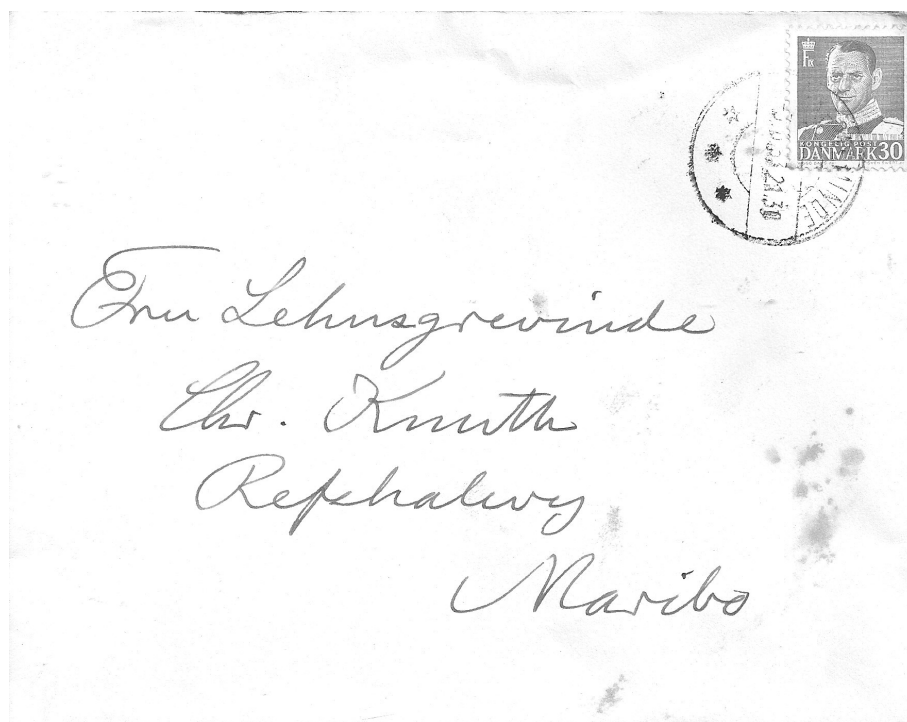 KONGELIG POST
DANMARK 30
21.30
Fru Lehnsgrevinde
Chr. Knuth
Refshalevej
Maribo